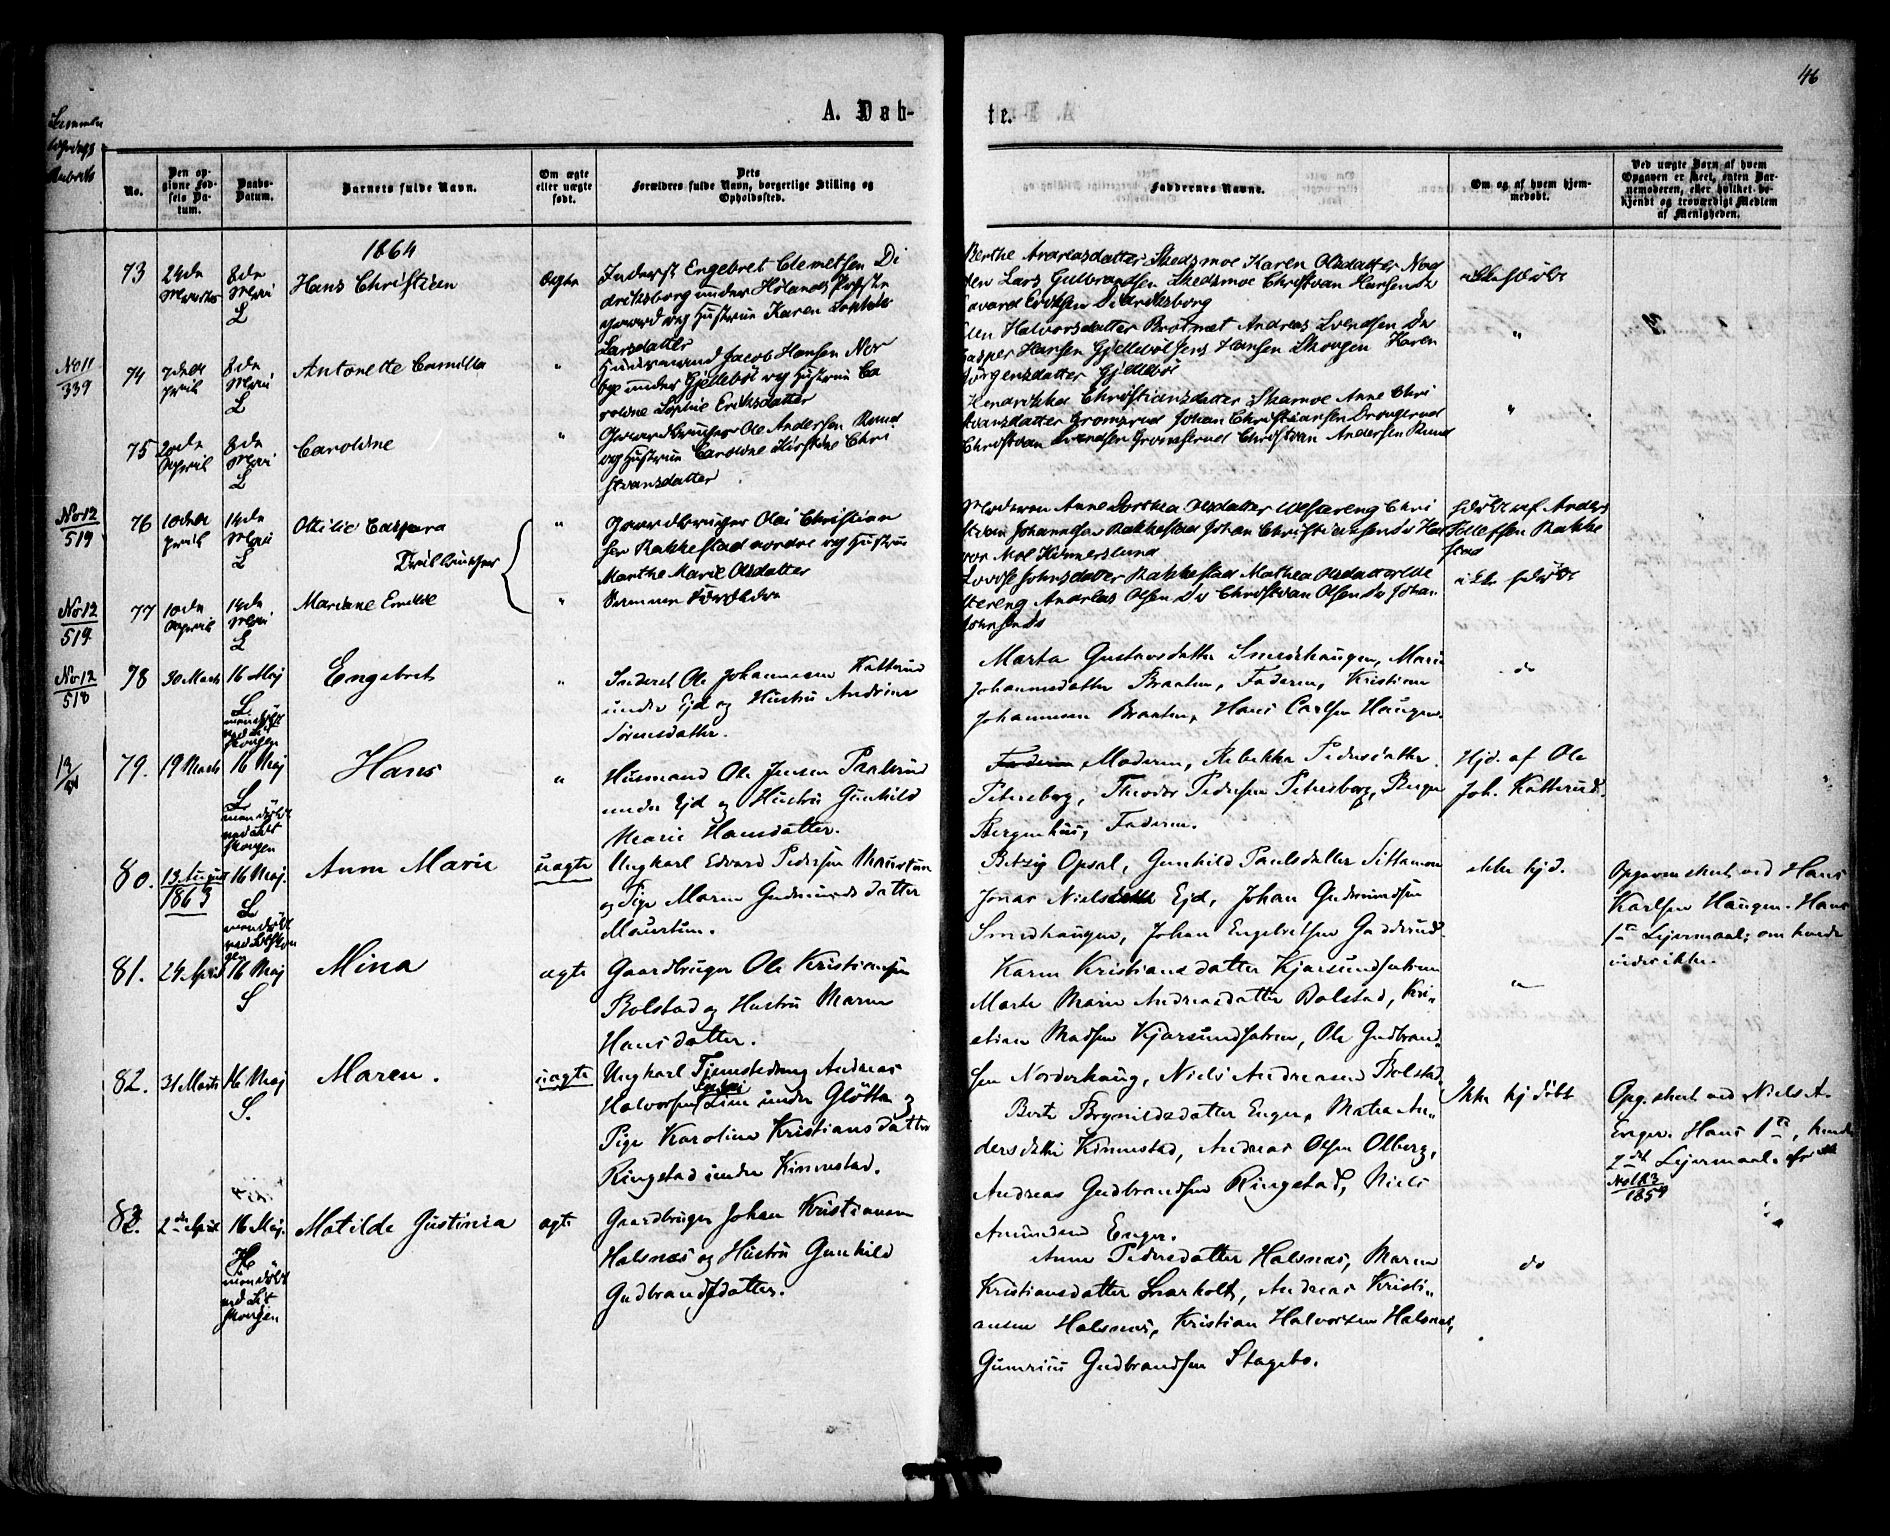 46
A. Døb-
te.
No.
Den op-
givne Fød-
sels Da-
tum.
Daabs-
Datum.
Barnets fulde Navn.
Om ægte
eller uægte
født.
Dets
Forældres fulde Navn, borgerlige Stilling og
Opholdssted.
Faddernes Navne.
Om og af hvem hjem-
medøbt.
Ved uægte Børn af hvem
Opgaven er skeet, enten Bar-
nemoderen, eller hvilket be-
kjendt og troværdigt Medlem
af Menigheden.
1864
73
24de
Marts
8de
Mai
L
Hans Christian
Ægte
Inderst Engebret Clemetsen Di
driksborg under Hølands Præste
gaard og Hustru Karen
Larsdatter
Berthe Andreasdatter Skedsmoe Karen Olsdatter
Lars Gulbrandsen Skedsmoe Christian Hansen
Eriksen Didriksborg
Ikke hjdøbt
No 11
339
74
7de
April
8de
Mai
L
Antonette Camilla
"
Huusmand Jacob Hansen Nor
bye under Gjellebøl og Hustru Ca
roline Sophie Eriksdatter
Halvorsdatter Brotnæt Andreas Svendsen
Casper Hansen Gjellebøl Jens Hansen Skougen Karen
Jørgensdatter Gjellebøl
"
75
20de
April
8de
Mai
L
Caroline
"
Gaardbruger Ole Andersen Rund
og Hustru Caroline Kirstine Chri
stiansdatter
Hendrikka Christiansdatter Skamoe Anne Chri
stiansdatter Gromsrud Johan Christiansen Drougsrud
Christian Svendsen Gromsrud Christian Andersen Rund
"
No 12
519
76
10de
April
14de
Mai
L
Ottilie Caspara
"
Gaardbruger Olai Christian
sen Rakkestad nordre og Hustru
Marthe Marie Olsdatter
Moderen Anne Dorthea Olsdatter Westereng Chri
stian Johannesen Rakkestad Johan Christiansen
Moe Kinnerslund
hjdøbt af Anders
Rakke
stad
Tvillinger
No 12
519
77
10de
April
14de
Mai
L
Mariane Emilie
"
Samme Forældre
Lovise Johnsdatter Rakkestad Mathea Olsdatter We
stereng Andreas Olsen Do Christian Olsen Do Johan
Johnsen Do
ikke hjdøbt
No 12
518
78
30 Marts
16 Maj
L
Engebret
"
Inderst Ole Johannesen Katterud
under Ejd og Hustru Andrine
Sørensdatter.
Marta Gustavsdatter Smedhaugen, Marie
Johannesdatter Braaten, Faderen, Kristian
Johannesen Braaten, Hans Carlsen Haugen.
do
79.
19 Marts
16 Maj
L
Hans
"
Husmand Ole Jensen Paalsrud
under Ejd og Hustru Gunhild
Marie Hansdatter.
Faderen Moderen, Rebekka Pedersdatter
Petersborg, Theodor Pedersen Petersborg,
Bergenhus, Faderen.
Hjd. af Ole
Joh. Katterud.
80.
13 August
1863
16 Maj.
L
Anne Marie
uægte
Ungkarl Edvard Pedersen Maurtun
og Pige Maren Gudmundsdatter
Maurtun.
Opsal, Gunhild Paulsdatter
Jonas Nielsen Ejd, Johan Gudmundsen
Smedhaugen, Johan Engebretsen Gudderud
ikke hjd.
Opgaven skeet ved Hans
Karlsen Haugen. Hans
1ste Lejermaal; om hende
vides ikke.
81.
24 April
16 Maj
S
Mina
ægte
Gaardbruger Ole Kristiansen
Bolstad og Hustru Maren
Hansdatter.
Karen Kristiansdatter Kjørsundsætren
Marte Marie Andreasdatter Bolstad, Kri-
stian Madsen Kjørsundsætren, Ole Gudbrand-
sen Norderhaug, Niels Andreasen Bolstad
"
82.
31 Marts
16 Maj
S.
Maren.
uægte
Ungkarl Tjenstedreng Andreas
Halvorsen Lim under Gløtta og
Pige Karoline Kristiansdatter
Ringstad under Kinnestad.
Berte Brynildsdatter Enger, Matea An-
dersdatter Kinnestad, Andreas Olsen Olberg,
Andreas Gudbrandsen Ringstad, Niels
Amundsen Enger.
Ikke hjdøbt
Opg. skeet ved Niels A.
Enger. Hans 1ste, hendes
2det Lejermaal.
1859
83.
2den April
16 Maj.
H
Matilde Gustinia
ægte
Gaardbruger Johan Kristiansen
Halsnæs og Hustru Gunhild
Gudbrandsdatter.
Anne Pedersdatter Halsnæs, Maren
Kristiansdatter Snarholt, Andreas Kristi-
ansen Halsnæs, Kristian Halvorsen Halsnæs,
Gudbrandsen Stagebo.
do